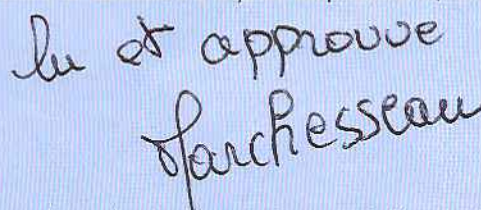 lu et approuve
Marchesseau